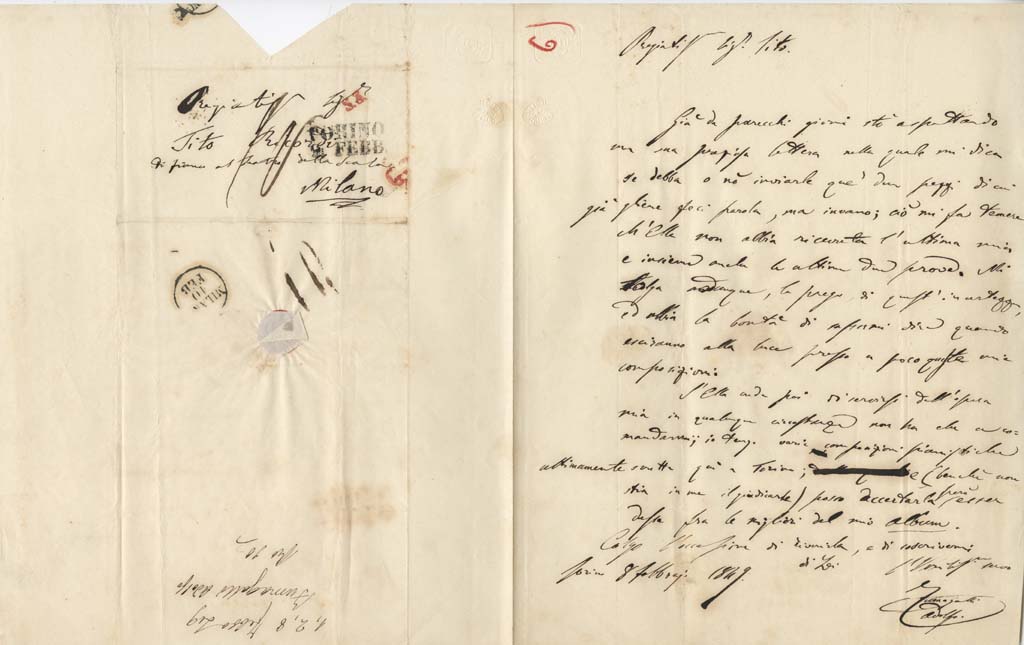 Pregiatiss Sigr
Tito Ricordi
di fianco al Teatro della Scala
Milano
TORINO
9 FEBB
MILANO
FEB
10
1, 2, 8
Fumagalli Adolfo
Pregiatiss Sigr Tito.
Già da parecchi giorni stò aspettando
una sua pregiosa lettera nella quale mi dica
se debba o nò inviarle que' due pezzi di cui
già gliene feci parola, ma invano; ciò mi fa temere
ch'Ella non abbia ricevuta l'ultima mia
e insieme anche le ultime due prove. Mi
tolga adunque, la prego di quest'incertezza,
ed abbia la bontà di sapermi dire quando
esciranno alla luce presso a poco queste mie
composizioni.
S'Ella crede poi di servirsi dell'opera
mia in qualunque circostanza non ha che a co-
mandarmi; io tengo varie composizioni pianistiche
ultimamente scritte quì a Torino; e (benchè non
stia in me il giudicarle) posso accertarla però esser
desse fra le migliori del mio album.
Colgo l'occasione di riverirla, e di soscrivermi
Torino 8 febbrajo 1849. di Lei
Fumagalli
Adolfo.